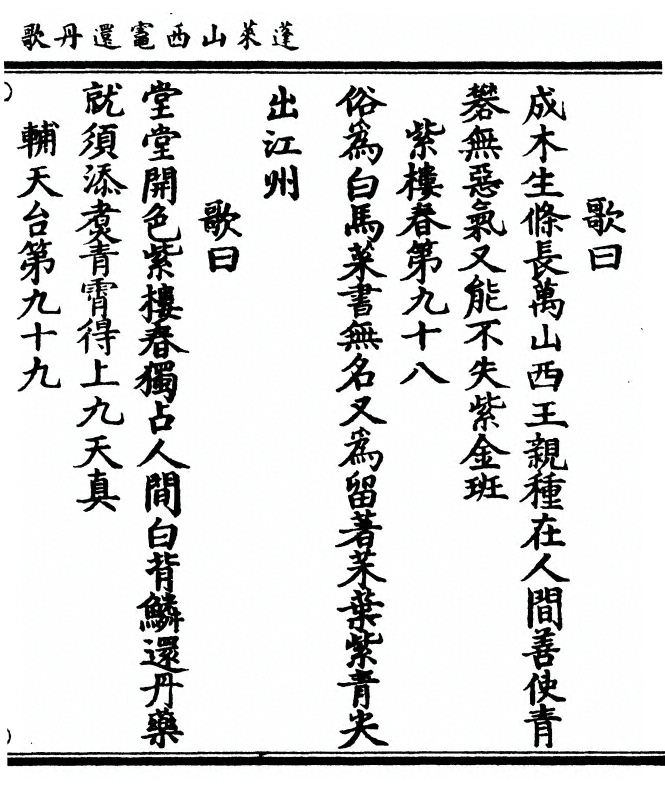 蓬萊山西竈還丹歌
歌曰
成木生條長萬山西王親種在人間善使青
礬無惡氣又能不失紫金班
紫樓春第九十八
俗爲白馬菜書無名又爲留著苿葉紫青尖
出江州
歌曰
堂堂開色紫樓春獨占人間白背鱗還丹藥
就須添煑青霄得上九天真
輔天台第九十九